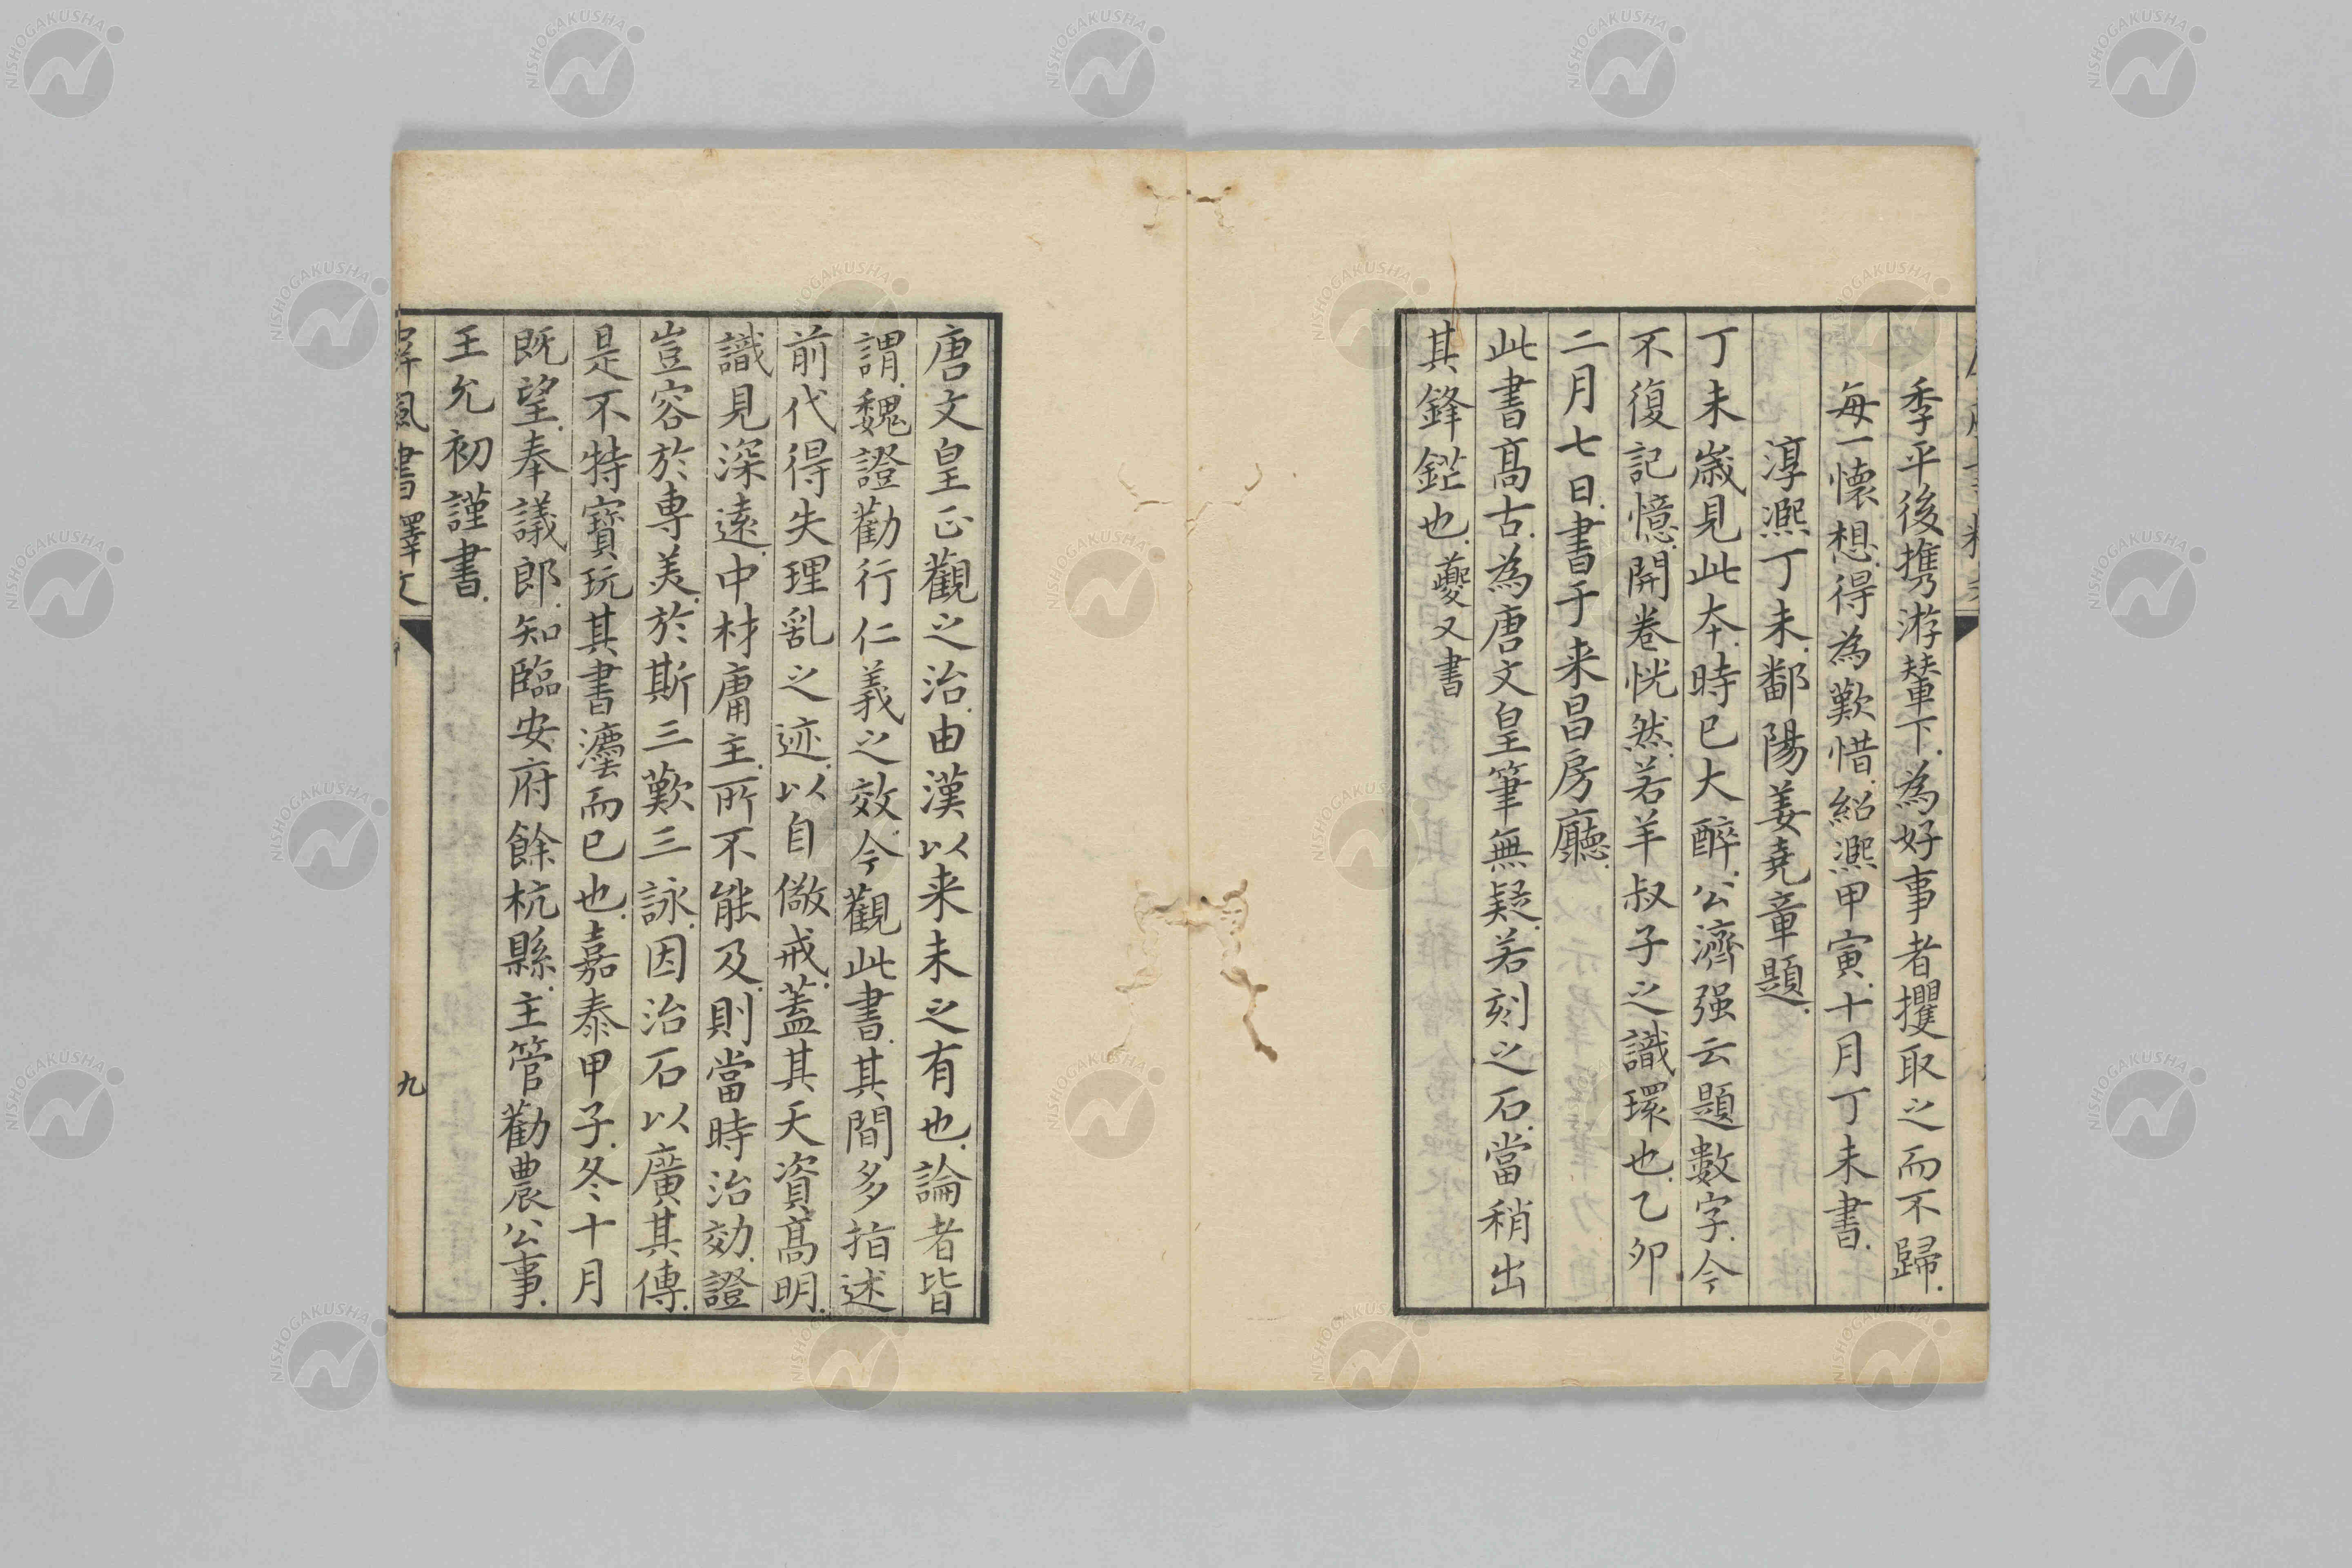 季平後攜游輦下為好事者攫取之而不歸
每一懷想得為歎惜紹熈甲寅十月丁未書
淳熈丁未鄱陽姜堯章題
丁未歲見此本時已大醉公濟强云題數字今
不復記憶開卷恍然若羊叔子之識環也乙卯
二月七日書于来昌房廳
此書髙古為唐文皇筆無疑若刻之石當稍出
其鋒鋩也夔又書
唐文皇正觀之治由漢以来未之有也論者皆
謂魏證勸行仁義之效今觀此書其間多指述
前代得失理亂之迹以自儆戒蓋其天資髙明
識見深遠中材庸主所不能及則當時治効證
豈容於専美於斯三歎三詠因治石以廣其傳
是不特寳玩其書灋而已也嘉泰甲子冬十月
既望奉議郎知臨安府餘杭縣主管勸農公事
王允初謹書
屏風書釋文
九
NISHOGAKUSHA